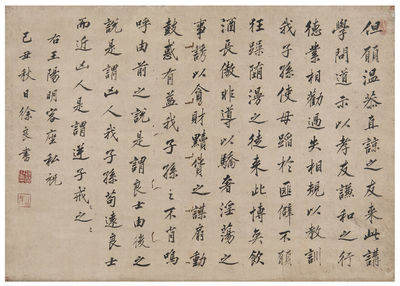 但願溫恭直諒之友来此講
學問道示以孝友謙和之行
德業相勸過失相規以教訓
我子孫使毋蹈於匪僻不願
狂躁隋慢之徒来此博奕飲
酒長傲非導以驕奢淫蕩之
事誘以貪財黷貨之謀扇動
鼓惑有益我子孫之不肖嗚
呼由前之說是謂良士由後之
說是謂凶人我子孫苟遠良士
而近凶人是謂逆子戒之
右王陽明客座私祝
己丑秋日徐良書